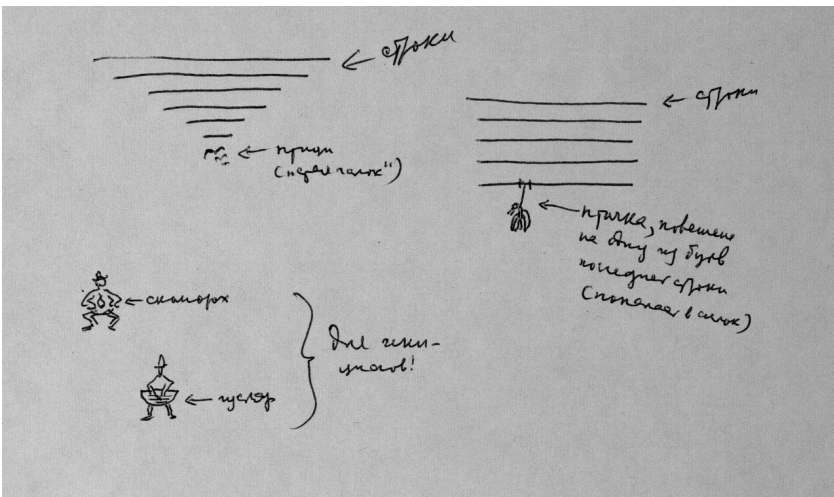 строки
птицы
строки
птичка, повешена
на одну из букв
последней строки
(попалась в силок)
скоморох
гусляр
для